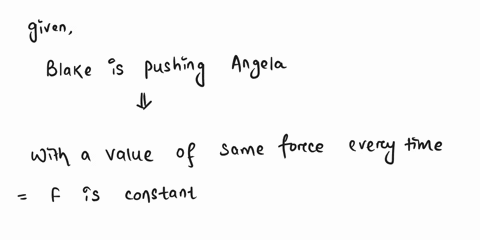 given,
Blake is pushing Angela
⇓
with a value of same force every time
= F is constant